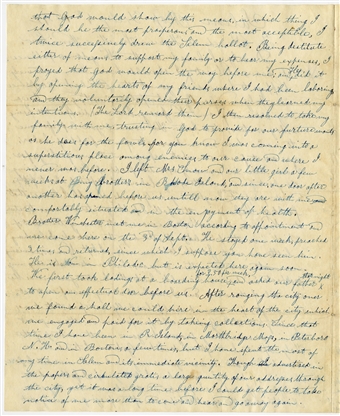 that God would show by this means, in which thing I
should be the most prosperous and the most acceptible, I
twice successively drew the Salem ballot. Being destitute
either of means to support my family or to bear my expenses, I
prayed that God would open the way before me; and did it
by opening the hearts of my friends where I had been laboring
and they voluntarily opened their purses when they learned my
intentions. (The Lord reward them) I then resolved to take my
family with me, trusting in God to provide for our further wants
as he does for the fowls for you know I was coming into a
superstitious place among enemies to our cause and where I
never was before. I left Mrs. Snow and our little girl a few
weeks at King brothers in R. Island, and since one door after
another has opened before us untill now they are with me and
comfortably situated and in the enjoyment of health.
Brother Winchester met me in Boston according to appointment and
we came here on the 3d of Sept. He stayed one week, preached
3 times, and returned, since which I suppose you have seen him.
He is now in Philade. but is expected here again soon
We first took lodging at a boarding house and asked our father that night
to open an effectual door before us. After ranging the city over
we found a hall we could hire in the heart of the city which
we engaged and paid for it by taking collections. Since that
time I have been in R. Island, in Northbridge Mass, in Peterboro
N. H. and in Boston a few times, but I have spent the most of
my time in Salem and its immediate vicinity. Though I advertised in
the papers and circulated gratis a large quantity of our addresses through
the city, yet it was a long time before I could get people to take
notice of me more than to come and hear and go away again.